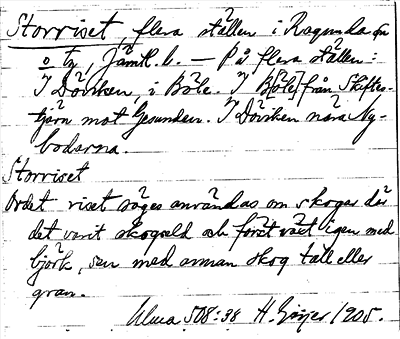 Storriset, flera ställen i Ragunda sn
o tg, Jämtl. l. — På flera ställen:
I Döviken, i Böle. I Böle från Skiftes-
tjärn mot Gesunden. I Döviken nära Ny-
bodarna.
Storriset
Ordet riset säges användas om skogar där
det varit skogseld och först växt igen med
björk, sen med annan skog tall eller
gran.
Ulma 508:38 H. Geijer 1905.